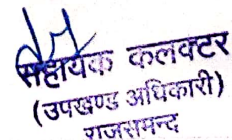 सहायक कलक्टर
(उपखण्ड अधिकारी)
राजसमन्द